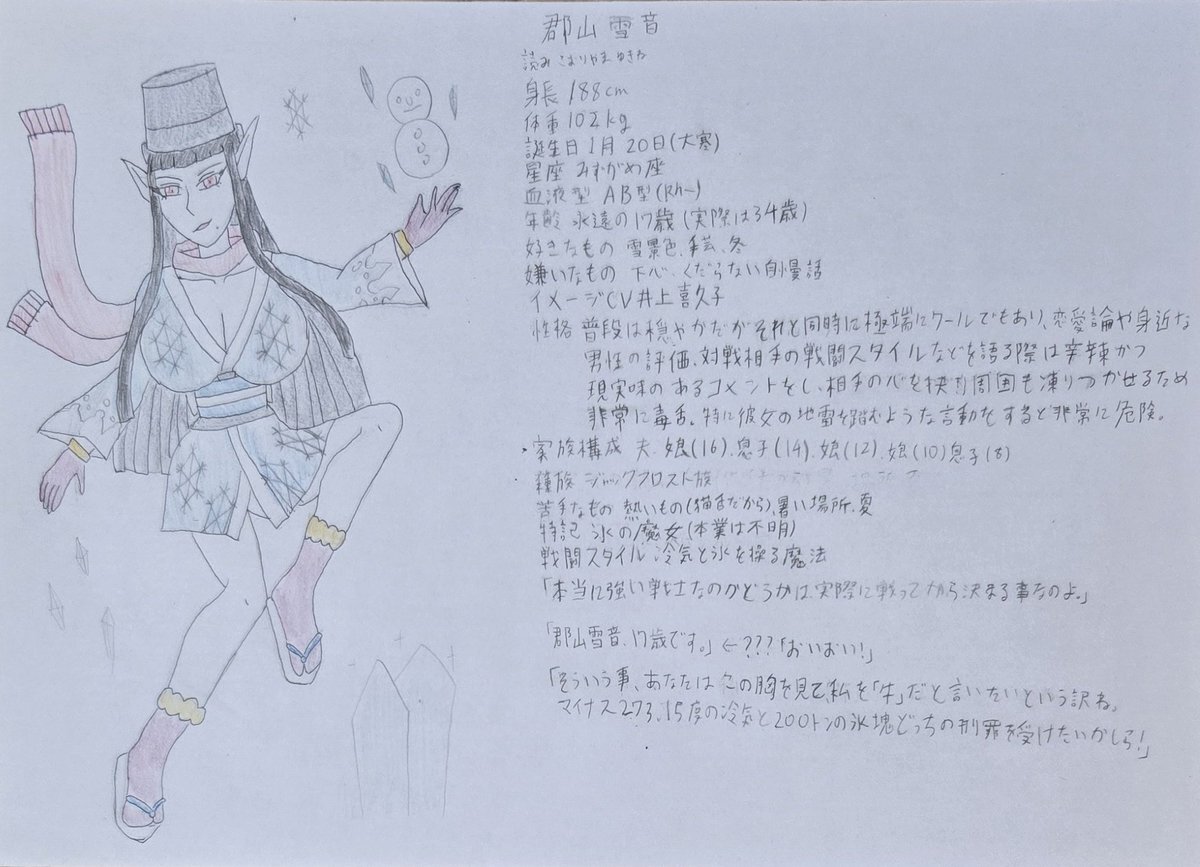 郡山雪音
読み こおりやま ゆきね
身長 188cm
体重 102kg
誕生日 1月 20日(大寒)
星座 みずがめ座
血液型 AB型(Rh-)
年齢 永遠の17歳(実際は34歳)
好きなもの 雪景色、手芸、冬
嫌いなもの 下心、くだらない自慢話
イメージCV井上喜久子
性格 普段は穏やかだがそれと同時に極端にクールでもあり、恋愛論や身近な
男性の評価、対戦相手の戦闘スタイルなどを語る際は辛辣かつ
現実味のあるコメントをし、相手の心を抉り周囲も凍りつかせるため
非常に毒舌。特に彼女の地雷を踏むような言動をすると非常に危険。
・家族構成 夫、娘(16)、息子(14)、娘(12)、娘(10)息子(8)
種族 ジャックフロスト族
苦手なもの 熱いもの(猫舌だから)、暑い場所、夏
特記 氷の魔女(本業は不明)
戦闘スタイル 冷気と氷を操る魔法
「本当に強い戦士なのかどうかは実際に戦ってから決まる事なのよ。」
「郡山雪音、17歳です。」←???「おいおい!」
「そういう事、あなたはこの胸を見て私を「牛」だと言いたいという訳ね。
マイナス273.15度の冷気と200トンの氷塊どっちの刑罪を受けたいかしら!」